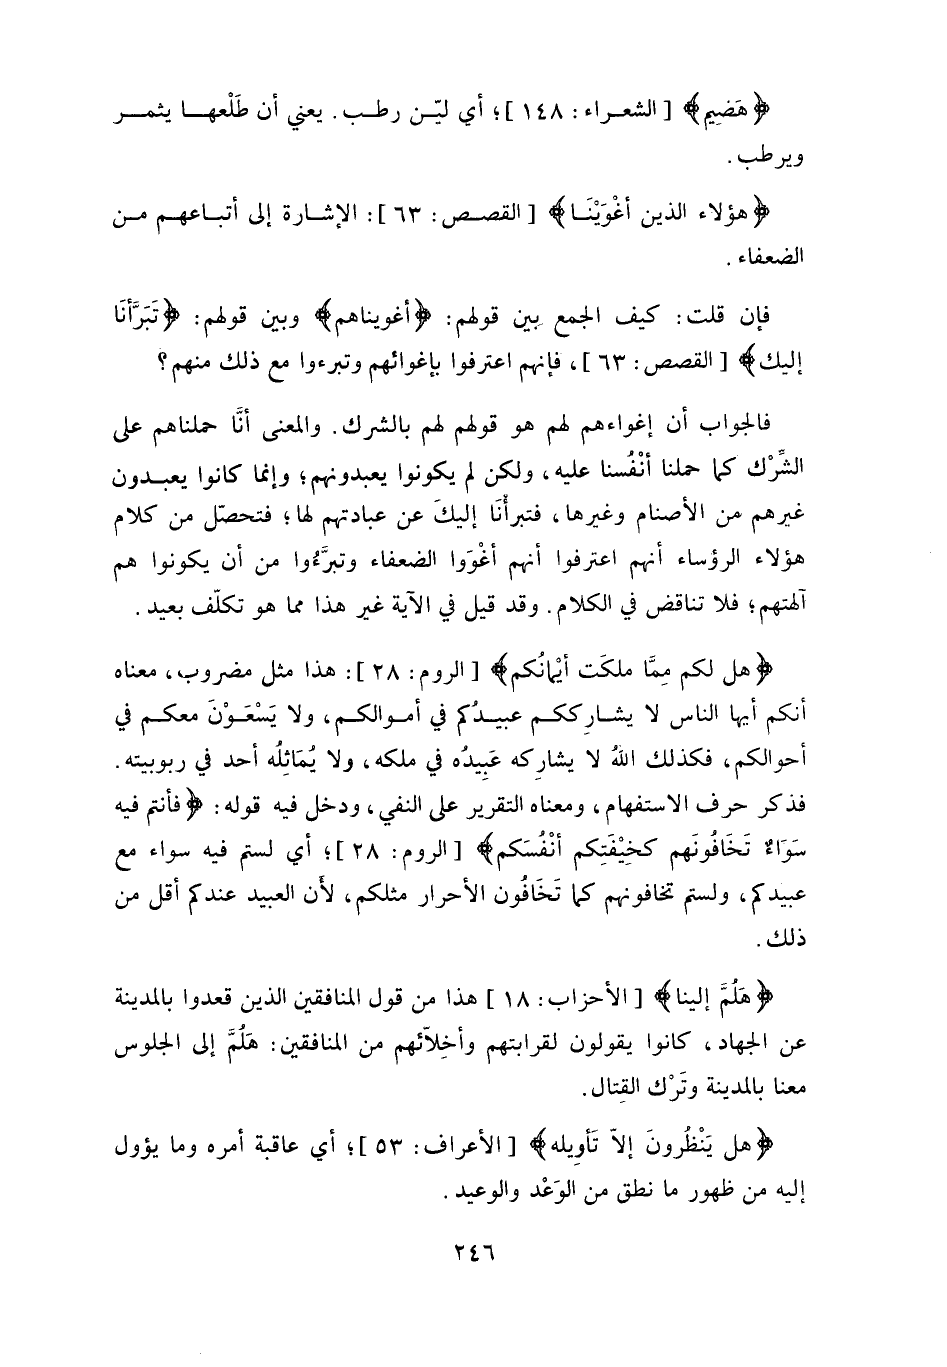 ﴿هَضِيم﴾ [الشعراء: ١٤٨]؛ أي ليّن رطب. يعني أن طَلْعها يثمر
ويرطب.
﴿هؤلاء الذين أغْوَيْنَا﴾ [القصص: ٦٣]: الإشارة إلى أتباعهم من
الضعفاء.
فإن قلت: كيف الجمع بين قولهم: ﴿أغويناهم﴾ وبين قولهم: ﴿تَبَرَّأنَا
إليك﴾ [القصص: ٦٣]، فإنهم اعترفوا بإغوائهم وتبرءوا مع ذلك منهم؟
فالجواب أن إغواءهم لهم هو قولهم لهم بالشرك. والمعنى أنَّا حملناهم على
الشِّرْك كما حملنا أنْفُسنا عليه، ولكن لم يكونوا يعبدونهم؛ وإنما كانوا يعبدون
غيرهم من الأصنام وغيرها، فتبرأنَا إليكَ عن عبادتهم لها؛ فتحصّل من كلام
هؤلاء الرؤساء أنهم اعترفوا أنهم أغْوَوا الضعفاء وتبرَّءُوا من أن يكونوا هم
آلهتهم؛ فلا تناقض في الكلام. وقد قيل في الآية غير هذا مما هو تكلّف بعيد.
﴿هل لكم مِمَّا ملكَت أيْمانُكم﴾ [الروم: ٢٨]: هذا مثل مضروب، معناه
أنكم أيها الناس لا يشارككم عبيدُكم في أموالكم، ولا يَسْعَوْنَ معكم في
أحوالكم، فكذلك اللهُ لا يشاركه عَبِيدُه في ملكه، ولا يُمَاثِلُه أحد في ربوبيته.
فذكر حرف الاستفهام، ومعناه التقرير على النفي، ودخل فيه قوله: ﴿فأنتم فيه
سَوَاءٌ تَخَافُونَهم كخِيْفَتِكم أنْفُسَكم﴾ [الروم: ٢٨]؛ أي لستم فيه سواء مع
عبيدكم، ولستم تخافونهم كما تَخَافُون الأحرار مثلكم، لأن العبيد عندكم أقل من
ذلك.
﴿هَلُمَّ إلينا﴾ [الأحزاب: ١٨] هذا من قول المنافقين الذين قعدوا بالمدينة
عن الجهاد، كانوا يقولون لقرابتهم وأخِلاّئهم من المنافقين: هَلُمَّ إلى الجلوس
معنا بالمدينة وتَرْك القِتال.
﴿هل يَنْظُرونَ إلاّ تَأوِيله﴾ [الأعراف: ٥٣]؛ أي عاقبة أمره وما يؤول
إليه من ظهور ما نطق من الوَعْد والوعيد.
٢٤٦